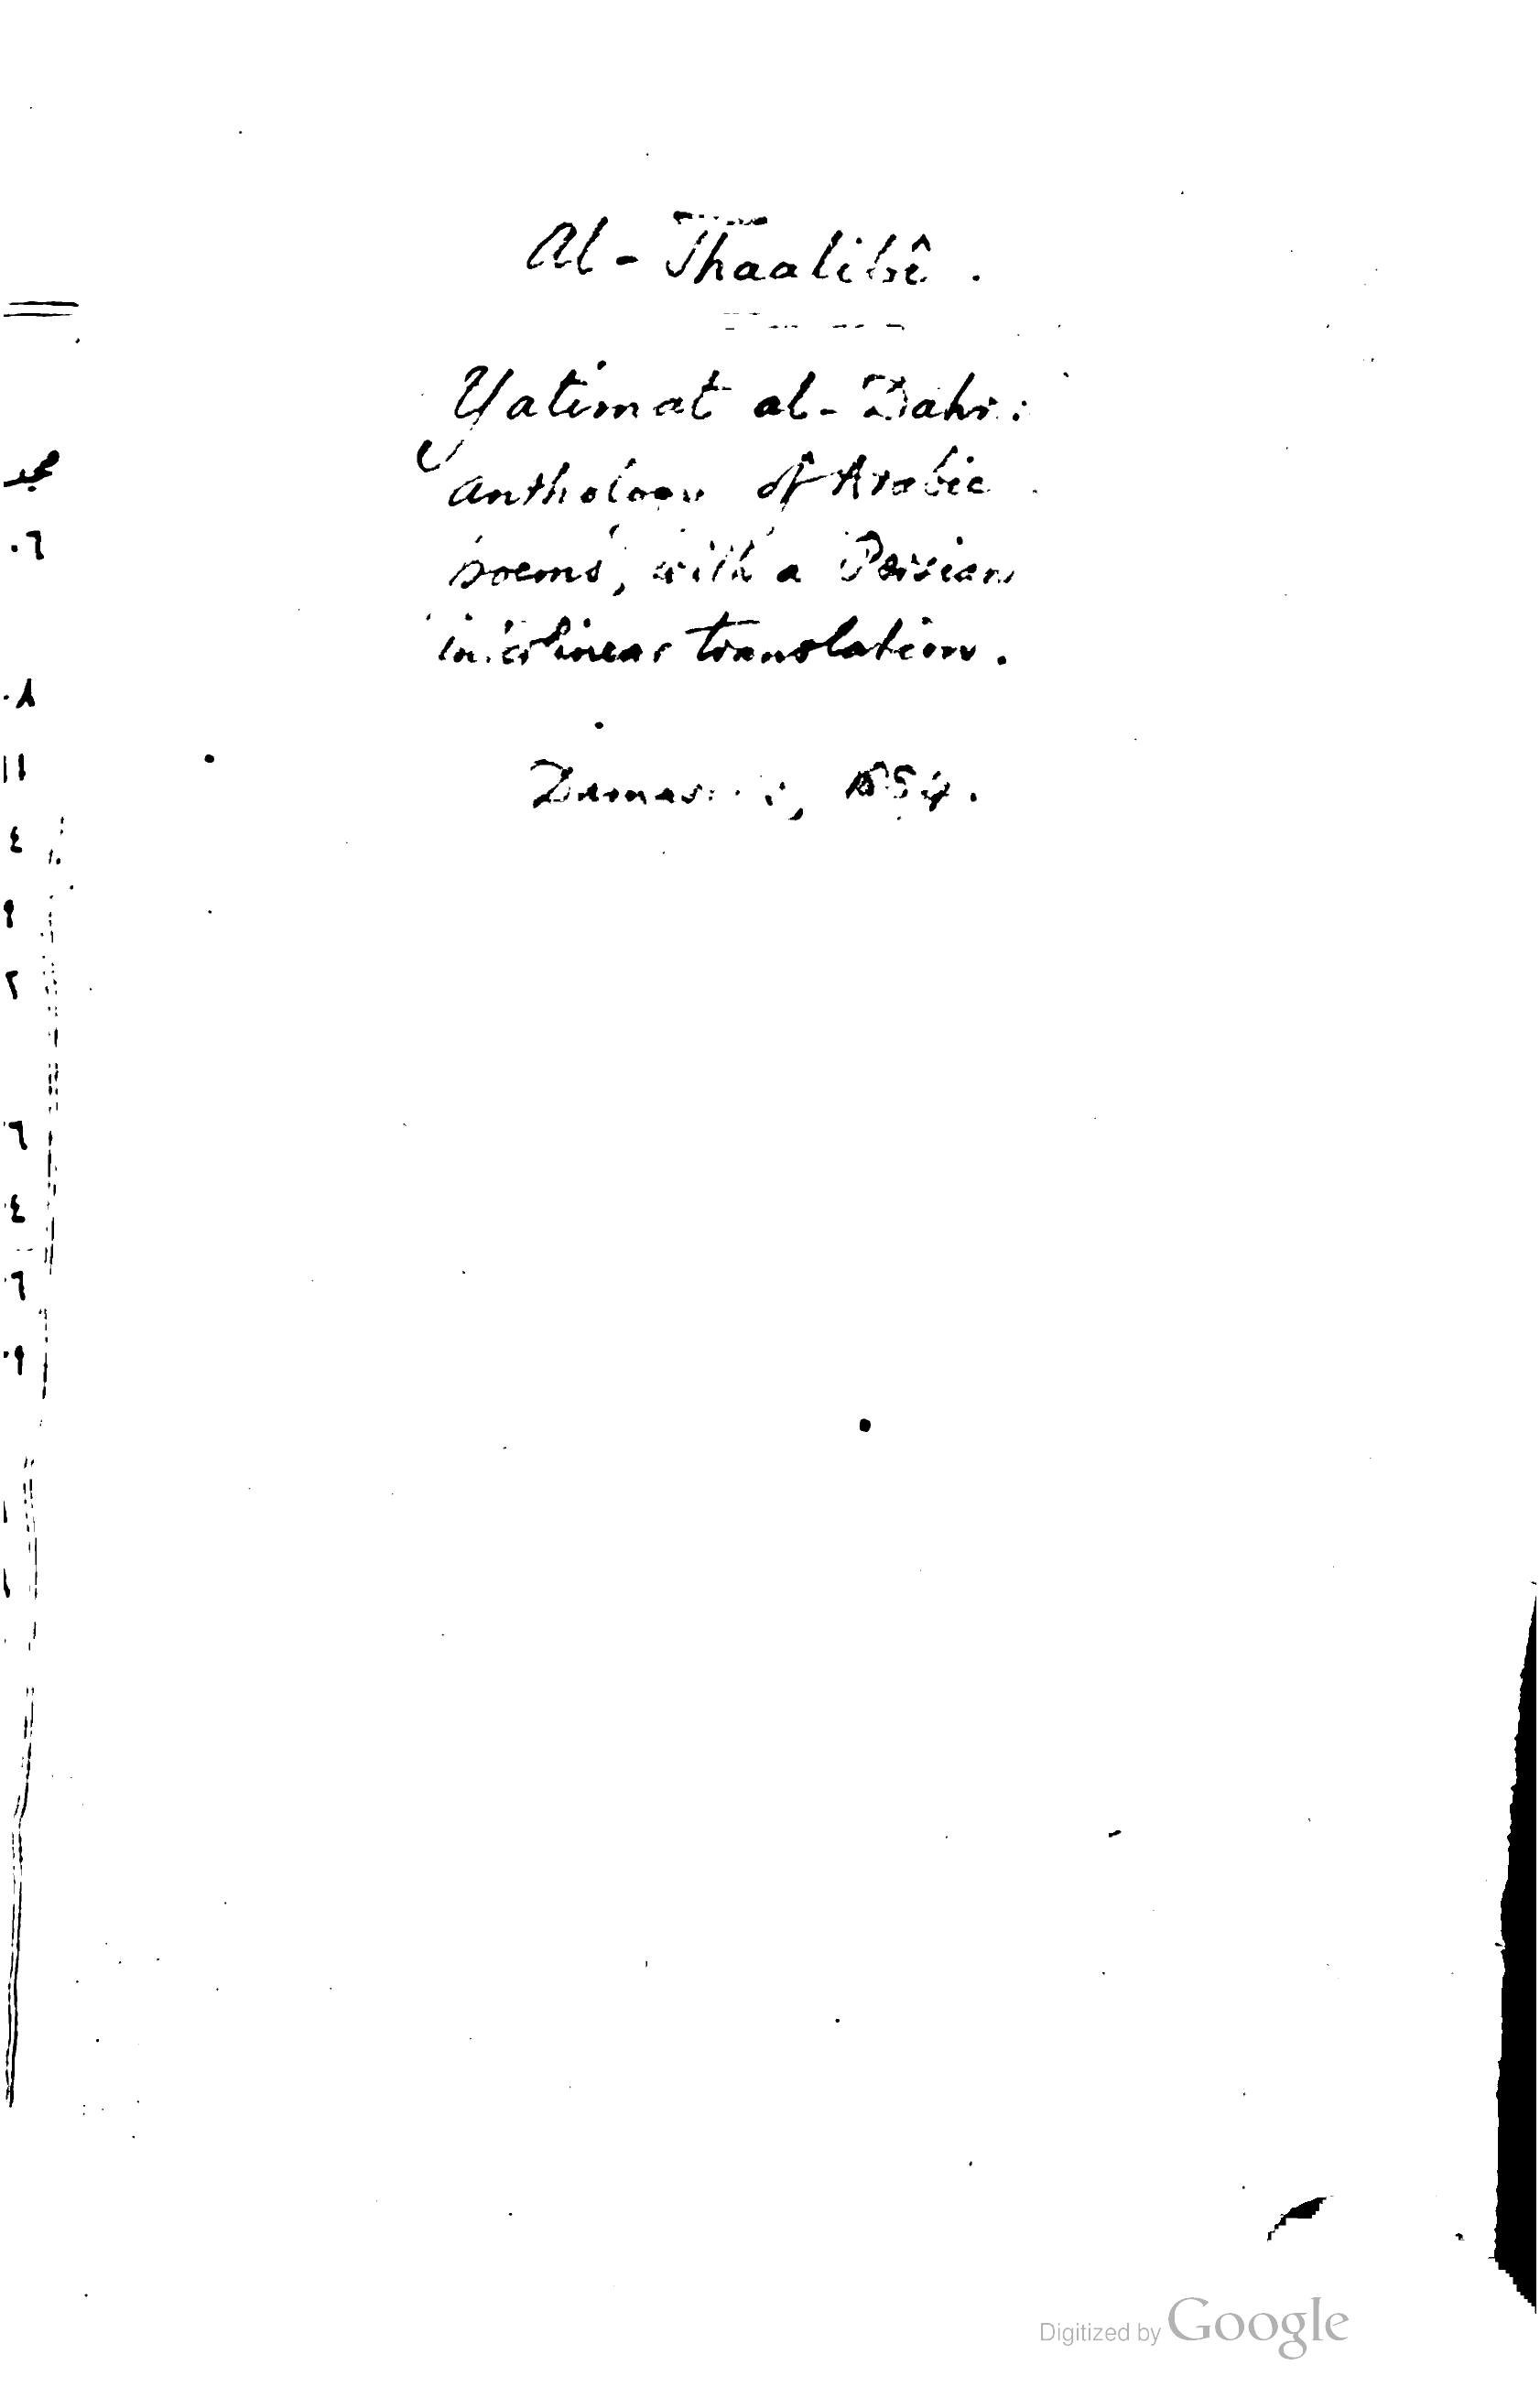 Al-Thaalibê.
Yatimat al-Dahr:
anthology of Arabic
poems, with a Persian
interlinear translation.
Damascus,
٠٦
٠٨
١١
٤
٩
٢
٦
٤
٦
٩
Digitized by Google